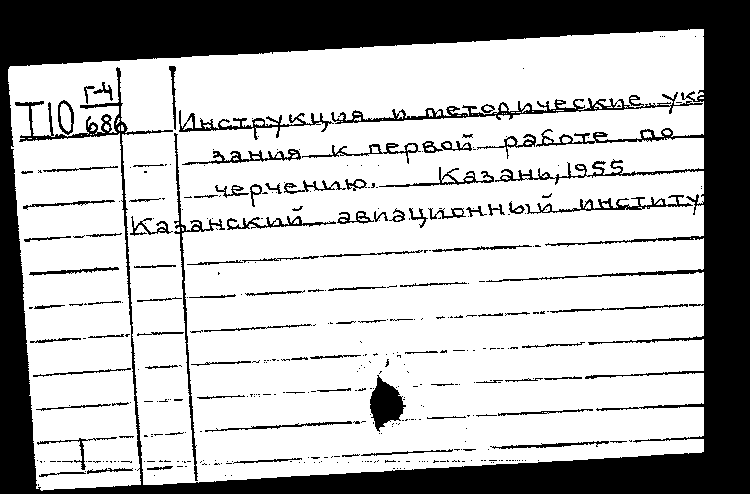 Т10 Г-4
686 Инструкция и методические ука
зания к первой работе по
черчению. Казань, 1955
Казанский авиационный институ
1